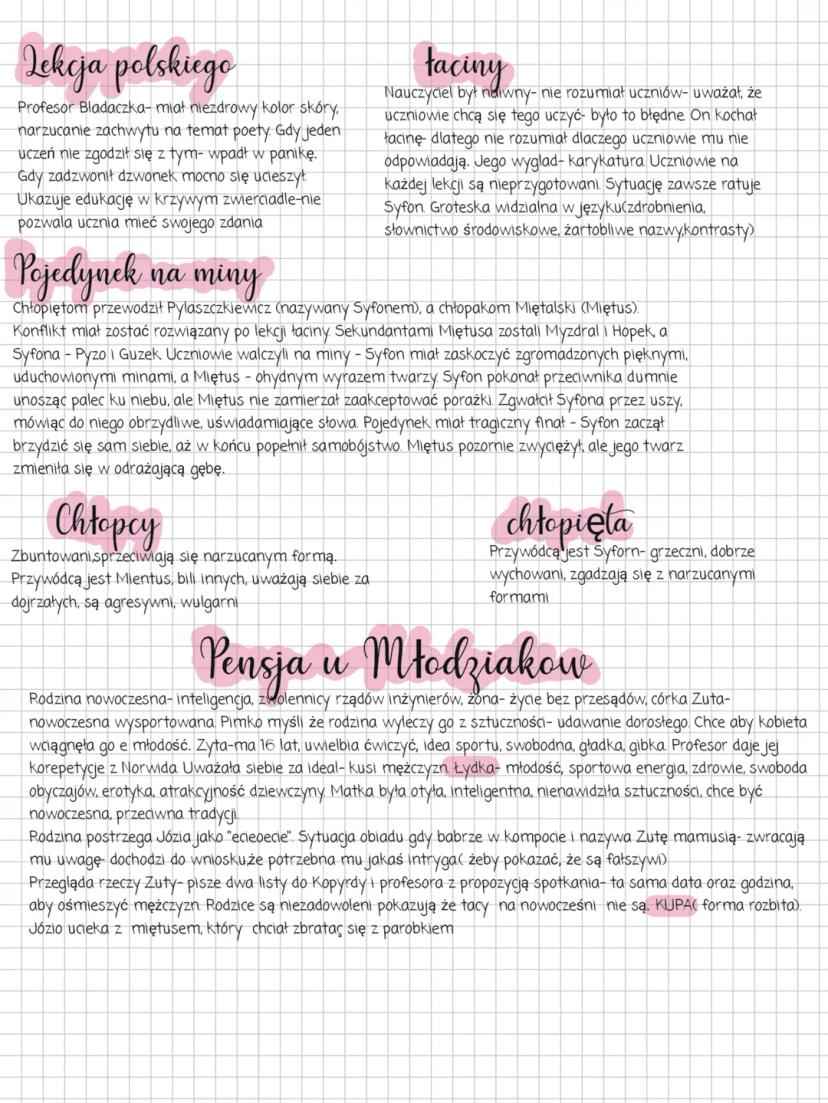 Lekcja polskiego
Profesor Bladaczka- miał niezdrowy kolor skóry,
narzucanie zachwytu na temat poety. Gdy jeden
uczeń nie zgodził się z tym- wpadł w panikę.
Gdy zadzwonił dzwonek mocno się ucieszył.
Ukazuje edukację w krzywym zwierciadle-nie
pozwala ucznia mieć swojego zdania
łaciny
Nauczyciel był naiwny- nie rozumiał uczniów- uważał, że
uczniowie chcą się tego uczyć- było to błędne. On kochał
łacinę- dlatego nie rozumiał dlaczego uczniowie mu nie
odpowiadają. Jego wyglad- karykatura. Uczniowie na
każdej lekcji są nieprzygotowani. Sytuację zawsze ratuje
Syfon. Groteska widzialna w języku(zdrobnienia,
słownictwo środowiskowe, żartobliwe nazwy,kontrasty)
Pojedynek na miny
Chłopiętom przewodził Pylaszczkiewicz (nazywany Syfonem), a chłopakom Miętalski (Miętus).
Konflikt miał zostać rozwiązany po lekcji łaciny. Sekundantami Miętusa zostali Myzdral i Hopek, a
Syfona - Pyzo i Guzek. Uczniowie walczyli na miny - Syfon miał zaskoczyć zgromadzonych pięknymi,
uduchowionymi minami, a Miętus - ohydnym wyrazem twarzy. Syfon pokonał przeciwnika dumnie
unosząc palec ku niebu, ale Miętus nie zamierzał zaakceptować porażki. Zgwałcił Syfona przez uszy,
mówiąc do niego obrzydliwe, uświadamiające słowa. Pojedynek miał tragiczny finał - Syfon zaczął
brzydzić się sam siebie, aż w końcu popełnił samobójstwo. Miętus pozornie zwyciężył, ale jego twarz
zmieniła się w odrażającą gębę.
Chłopcy
Zbuntowani,sprzeciwiają się narzucanym formą.
Przywódcą jest Mientus, bili innych, uważają siebie za
dojrzałych, są agresywni, wulgarni
chłopięta
Przywódcą jest Syforn- grzeczni, dobrze
wychowani, zgadzają się z narzucanymi
formami
Pensja u Młodziakow
Rodzina nowoczesna- inteligencja, zwolennicy rządów inżynierów, żona- życie bez przesądów, córka Zuta-
nowoczesna wysportowana. Pimko myśli że rodzina wyleczy go z sztuczności- udawanie dorosłego. Chce aby kobieta
wciągnęła go e młodość. Zyta-ma 16 lat, uwielbia ćwiczyć, idea sportu, swobodna, gładka, gibka. Profesor daje jej
korepetycje z Norwida. Uważała siebie za ideal- kusi mężczyzn. Łydka- młodość, sportowa energia, zdrowie, swoboda
obyczajów, erotyka, atrakcyjność dziewczyny. Matka była otyła, inteligentna, nienawidziła sztuczności, chce być
nowoczesna, przeciwna tradycji.
Rodzina postrzega Józia jako "ecieoecie". Sytuacja obiadu gdy babrze w kompocie i nazywa Zutę mamusią- zwracają
mu uwagę- dochodzi do wniosku,że potrzebna mu jakaś intryga( żeby pokazać, że są fałszywi)
Przegląda rzeczy Zuty- pisze dwa listy do Kopyrdy i profesora z propozycją spotkania- ta sama data oraz godzina,
aby ośmieszyć mężczyzn. Rodzice są niezadowoleni pokazują że tacy na nowocześni nie są. KUPA( forma rozbita).
Józio ucieka z miętusem, który chciał zbrataç się z parobkiem